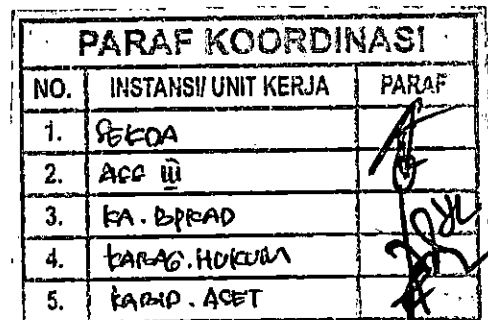 PARAF KOORDINASI
NO. INSTANSI/ UNIT KERJA PARAF
1. SEKDA
2. ASS III
3. KA. BPKAD
4. KABAG. HUKUM
5. KABID. ASET